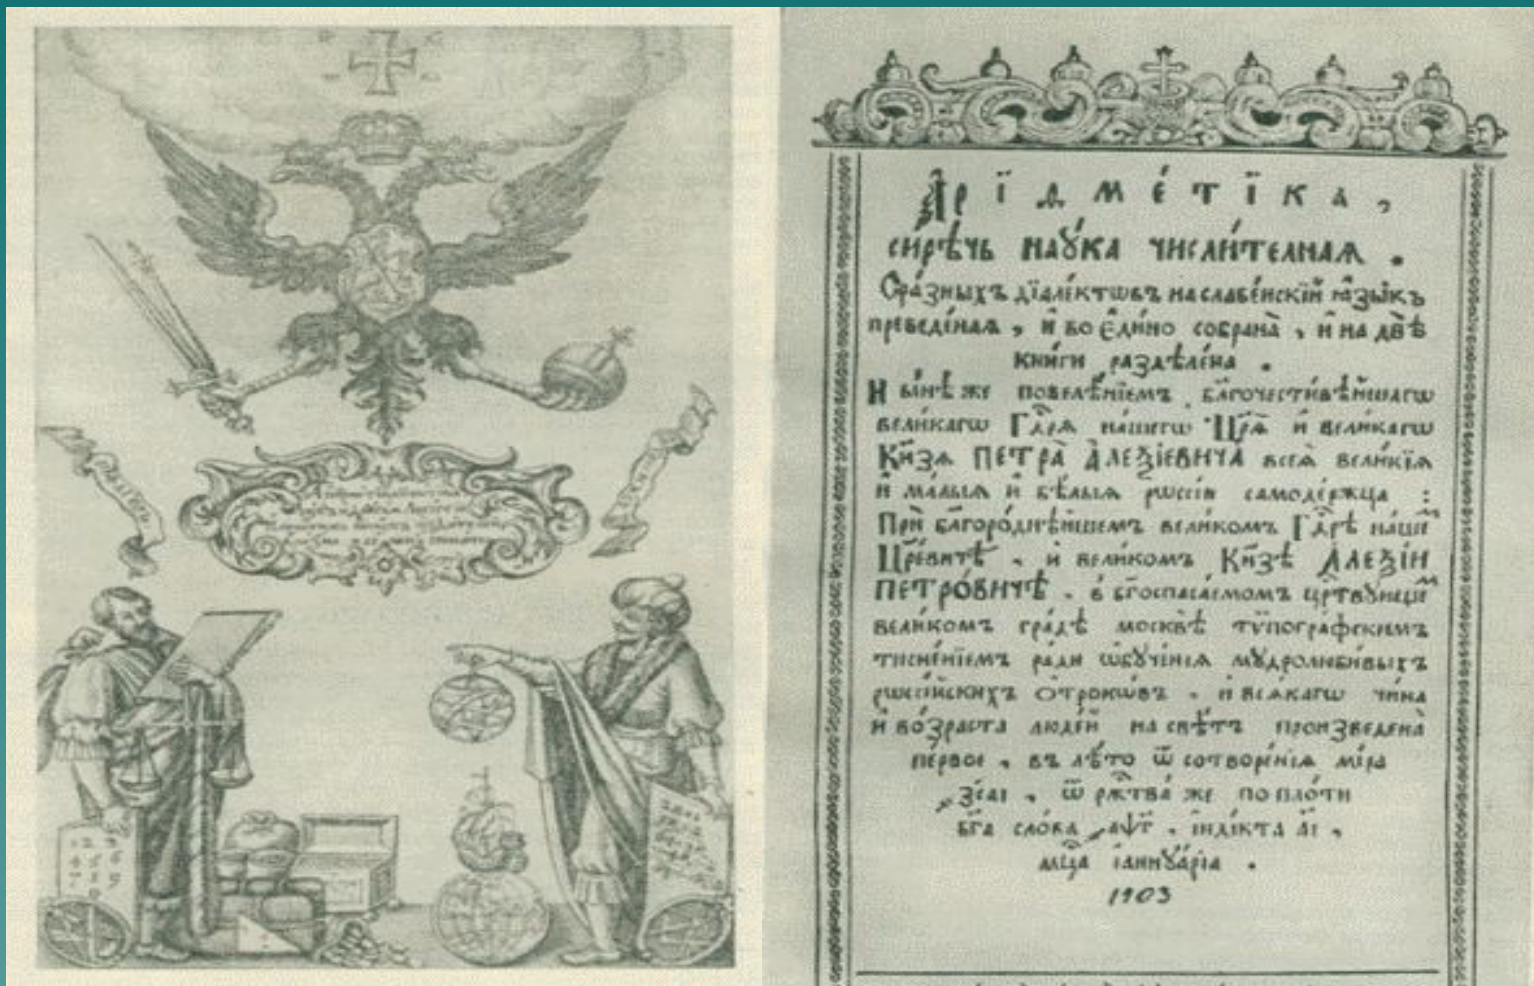 Арїѳмéтїка,
сирѣчь наꙋка числителнаѧ.
Съ рáзныхъ дїалéктѡвъ на славéнскїй ꙗ҆зы́къ
преведéнаѧ, и во є҆дино собранà, и на двѣ
книги раздѣлéна.
Нынѣ же повелѣнїемъ благочестивѣйшагѡ
великагѡ Гдⷭ҇рѧ нашегѡ Цр҃ѧ и великагѡ
Кн҃зѧ ПЕТРА̀ А҆ЛЕѮІЕВИЧА всеѧ̀ великїѧ
и мáлыѧ и бѣлыѧ рѡссїи самодéржца :
При благорóднѣйшемъ великомъ Гдⷭ҇рѣ нашемъ
Цр҃евичѣ, и великомъ Кн҃зѣ А҆ЛЕѮІИ
ПЕТРО́ВИЧѢ, в бг҃оспасáемомъ црⷭ҇твꙋющемъ
великомъ грáдѣ москвѣ тѷпогрáфскимъ
тиснéнїемъ ради ѡбꙋчéнїѧ мꙋдролюбивыхъ
рѡссїйскихъ óтрокѡвъ, и всѧкагѡ чина
и вóзраста людéй на свѣтъ произведенà
пéрвое, въ лѣто ѿ сотворéнїѧ мíра
҂зсаі, ѿ ржⷭ҇твà же по плóти
бг҃а слóва ҂аѱг, їндїкта аі,
мцⷭ҇а їаннꙋáрїа.
1703